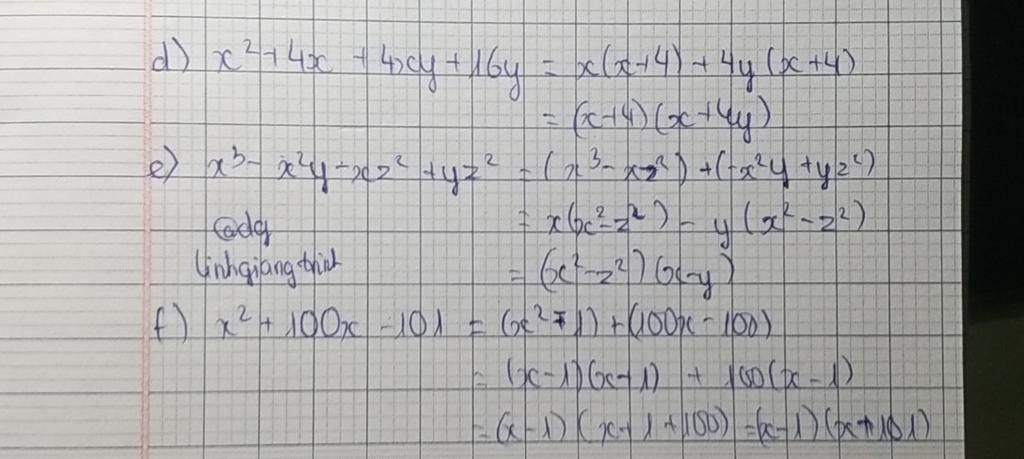 d) x² + 4x + 4xy + 16y = x(x+4) + 4y(x+4)
= (x+4)(x+4y)
e) x³ - x²y - xz² + yz² = (x³ - xz²) + (-x²y + yz²)
@dg = x(x² - z²) - y(x² - z²)
linhgiangtrinh = (x² - z²)(x-y)
f) x² + 100x - 101 = (x² - 1) + (100x - 100)
= (x-1)(x+1) + 100(x-1)
= (x-1)(x+1+100) = (x-1)(x+101)